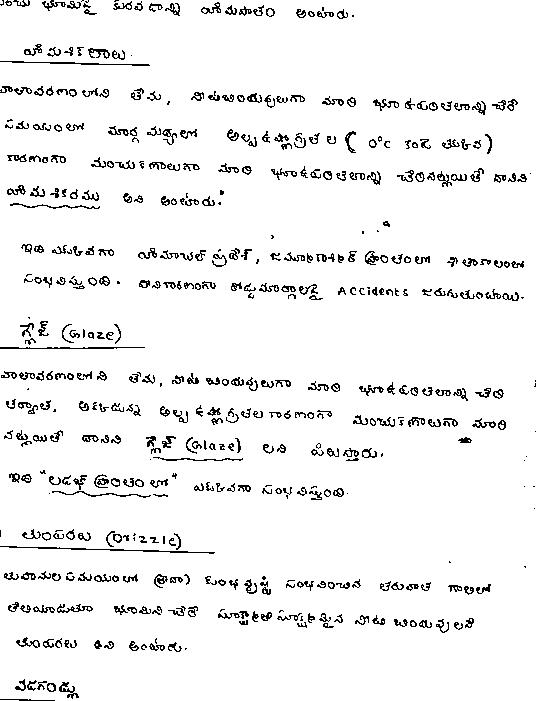 మంచు భూమిపై కురవడాన్ని హిమపాతం అంటారు.
హిమశీకరాలు
వాతావరణంలోని తేమ, నీటిబిందువులుగా మారి భూఉపరితలాన్ని చేరే
సమయంలో మార్గ మధ్యలో అల్ప ఉష్ణోగ్రతల ( 0°c కంటే తక్కువ )
కారణంగా మంచుకణాలుగా మారి భూఉపరితలాన్ని చేరినట్లయితే దానిని
హిమశీకరము అని అంటారు.
ఇది ఎక్కువగా హిమాచల్ ప్రదేశ్, జమ్మూకాశ్మీర్ ప్రాంతంలో శీతాకాలంలో
సంభవిస్తుంది. దీనికారణంగా రోడ్డుమార్గాలపై Accidents జరుగుతుంటాయి.
గ్లేజ్ (Glaze)
వాతావరణంలోని తేమ, నీటి బిందువులుగా మారి భూఉపరితలాన్ని చేరి
తర్వాత, అక్కడున్న అల్ప ఉష్ణోగ్రతల కారణంగా మంచుకణాలుగా మారి
నట్లయితే దానిని గ్లేజ్ (Glaze) లని పిలుస్తారు.
ఇది "లడఖ్ ప్రాంతంలో" ఎక్కువగా సంభవిస్తుంది.
తుంపరలు (Drizzle)
తుఫానుల సమయంలో (లేదా) కుంభవృష్టి సంభవించిన తరువాత గాలిలో
తేలియాడుతూ భూమిని చేరే సూక్ష్మాతిసూక్ష్మమైన నీటి బిందువులనే
తుంపరలు అని అంటారు.
వడగండ్లు